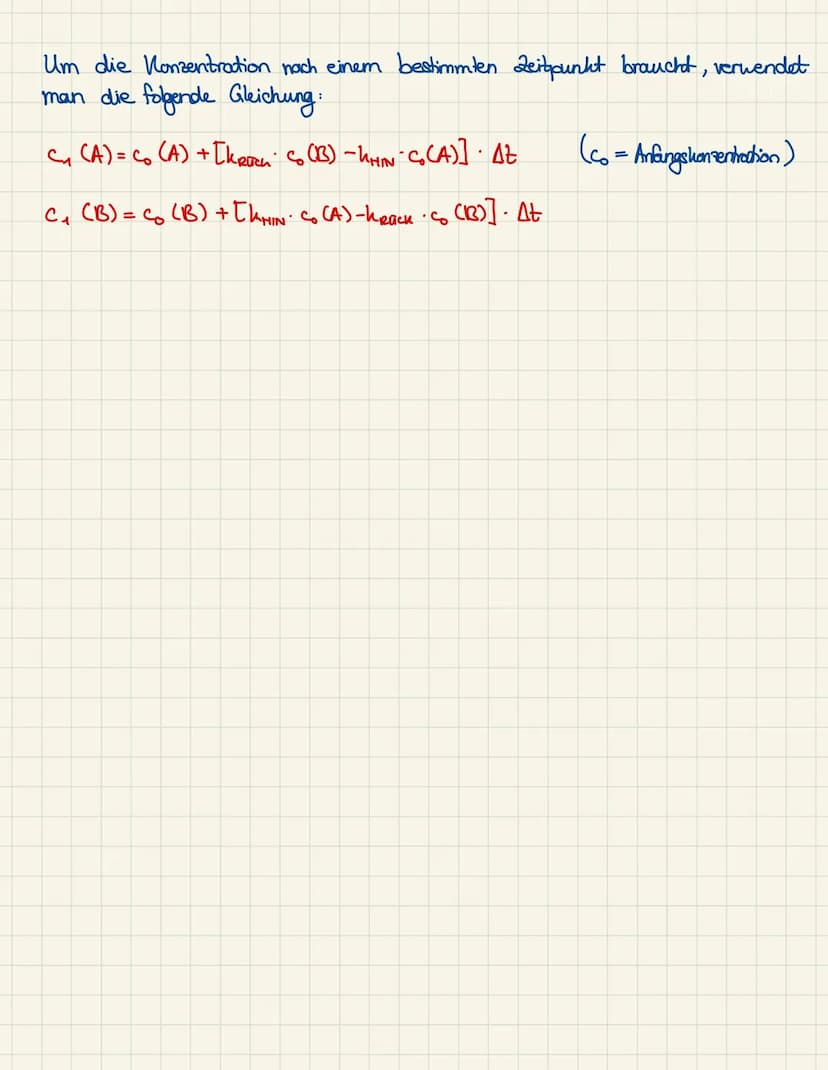 Um die Konzentration nach einem bestimmten Zeitpunkt braucht, verwendet
man die folgende Gleichung:
c₁ (A) = c₀ (A) + [k_RÜCK · c₀ (B) - k_HIN · c₀ (A)] · Δt (c₀ = Anfangskonzentration)
c₁ (B) = c₀ (B) + [k_HIN · c₀ (A) - k_RÜCK · c₀ (B)] · Δt